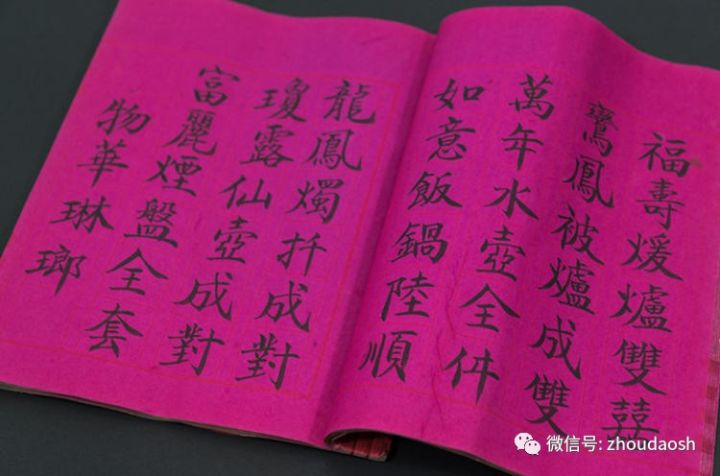 福壽煖爐雙囍
鸞鳳被爐成雙
萬年水壺全件
如意飯鍋陸順
龍鳳燭扦成對
瓊露仙壺成對
富麗煙盤全套
物華琳瑯
微信号: zhoudaosh